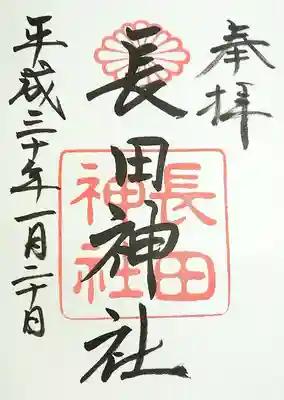 奉拝
長田神社
長田
神社
平成三十年一月二十日